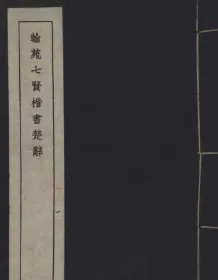 翰苑七賢楷書楚辭